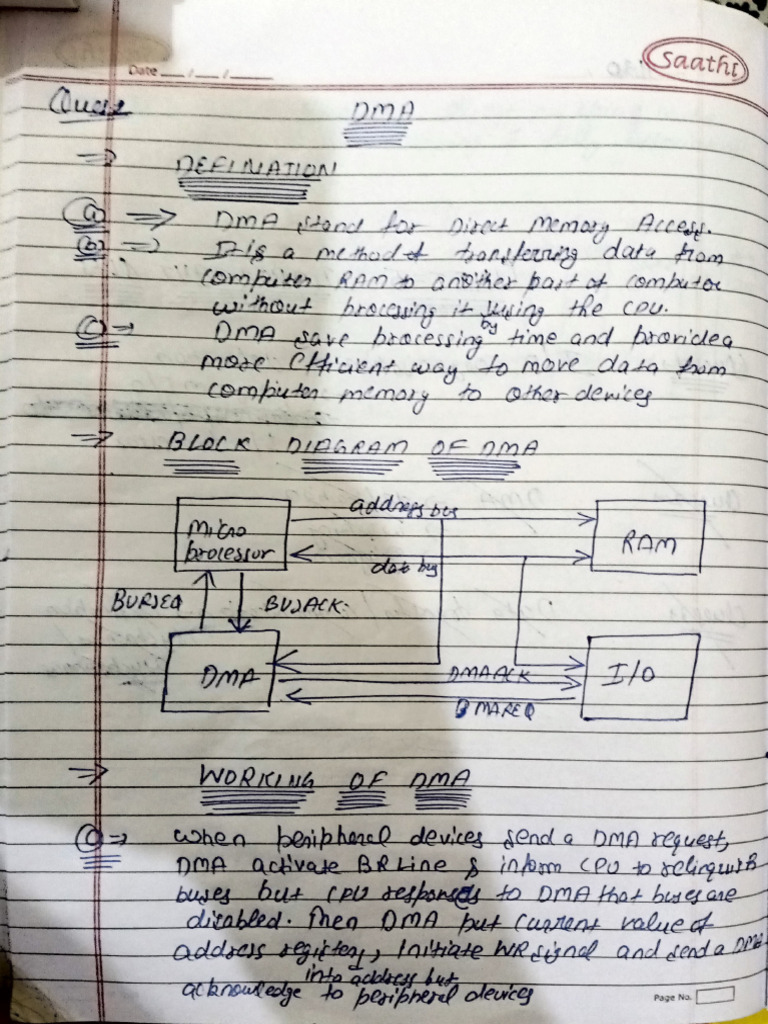 Saathi
Date __/__/__
Ques DMA
⇒ DEFINATION
(a) ⇒ DMA stand for Direct Memory Access.
(b) ⇒ It is a method of transferring data from
computer RAM to another part of computer
without processing it using the CPU.
(c) ⇒ DMA save processing time and provide a
by
more efficient way to move data from
computer memory to other devices
⇒ BLOCK DIAGRAM OF DMA
address bus
Micro
processor
RAM
data bus
BURSEQ BUSACK:
DMA
DMAACK
I/O
DMAREQ
⇒ WORKING OF DMA
⇒ When peripheral devices send a DMA request,
DMA activate BR Line & inform CPU to relinquish
buses but CPU responses to DMA that buses are
disabled. Then DMA put current value of
address registery, initiate WR signal and send a DMA
into address bus
acknowledge to peripheral devices
Page No.